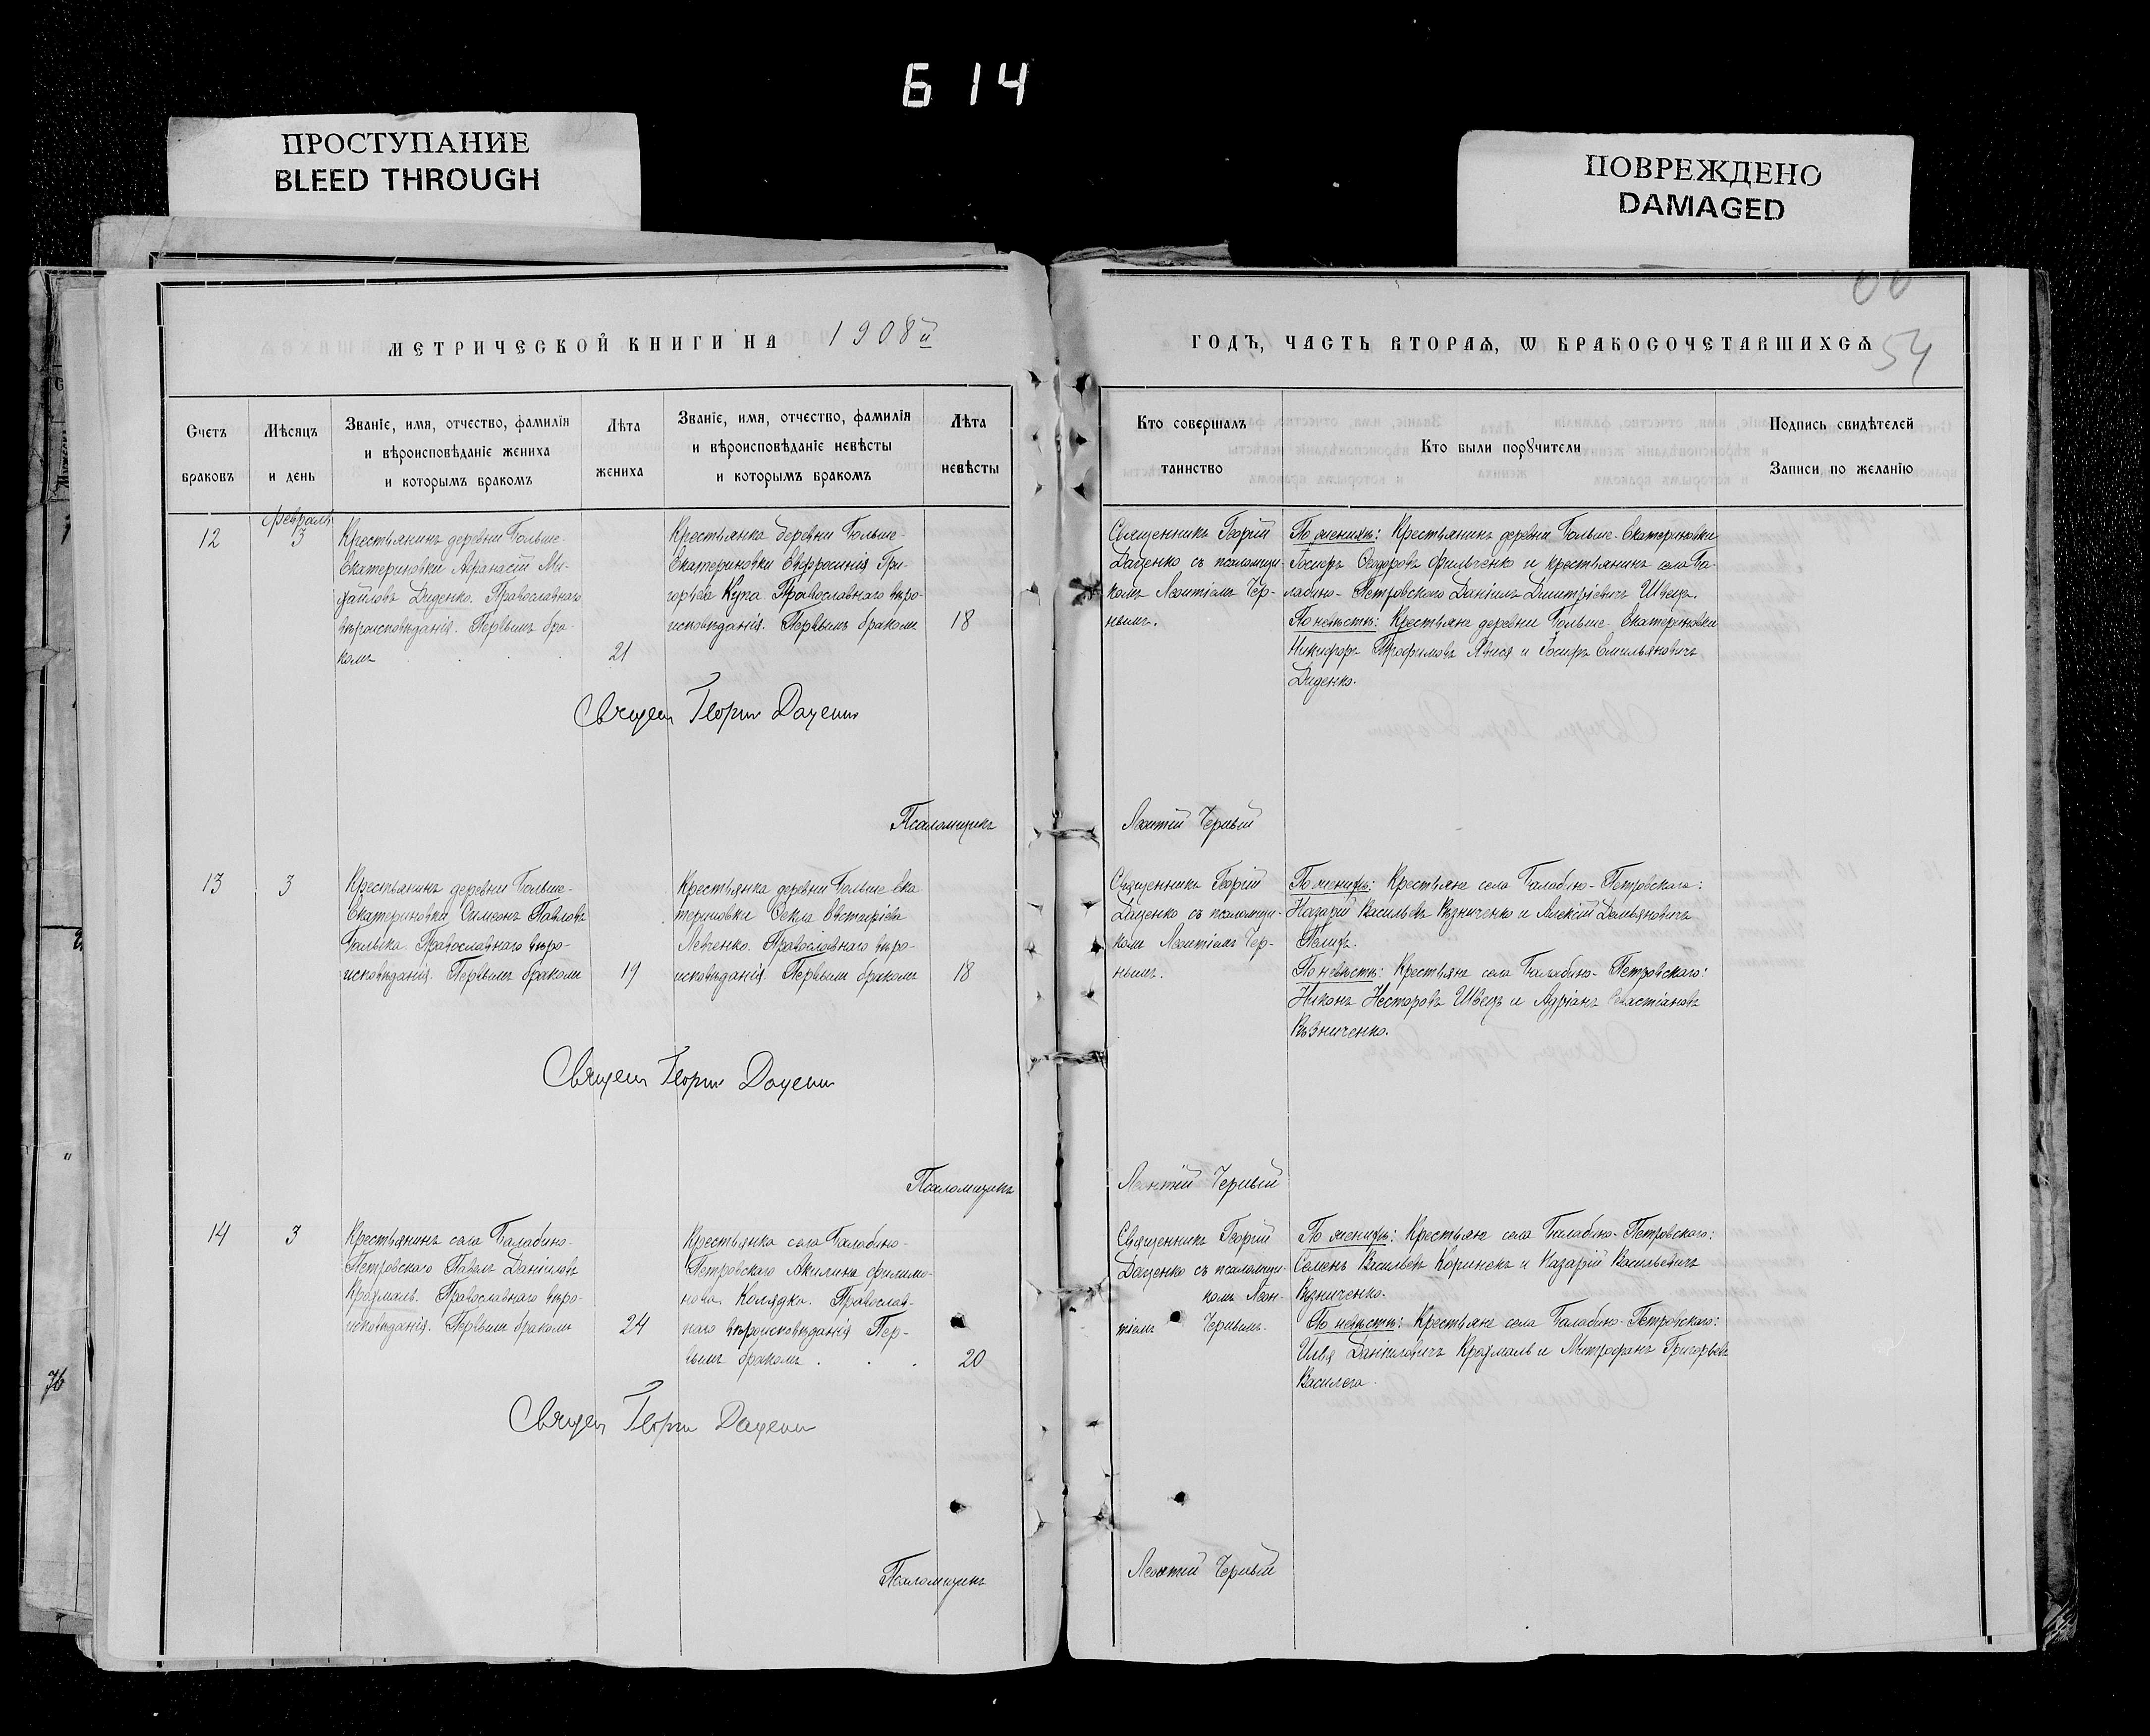 614
ПРОСТУПАНИЕ
BLEED THROUGH
ПОВРЕЖДЕНО
DAMAGED
МЕТРИЧЕСКОЙ КНИГИ НА 1908й
ГОДЪ, ЧАСТЬ ВТОРАѦ, Ѡ БРАКОСОЧЕТАВШИХСѦ
54
Счетъ
браковъ
Мѣсяцъ
и день
Званіе, имя, отчество, фамилія
и вѣроисповѣданіе жениха
и которымъ бракомъ
Лѣта
жениха
Званіе, имя, отчество, фамилія
и вѣроисповѣданіе невѣсты
и которымъ бракомъ
Лѣта
невѣсты
Кто совершалъ
таинство
Кто были порꙋчители
Подпись свидѣтелей
Записи по желанію
12
Февраль
3
Крестьянинъ деревни Больше-
Екатериновки Афанасій Ми-
хайловъ Диденко. Православнаго
вѣроисповѣданія. Первымъ бра-
комъ
21
Крестьянка деревни Больше-
Екатериновки Евфросинія Гри-
горьева Купа Православнаго вѣро-
исповѣданія. Первымъ бракомъ
18
Священникъ Георгій
Даценко съ псаломщи-
комъ Леонтіемъ Чер-
нымъ.
По женихѣ: Крестьянинъ деревни Больше-Екатериновки
Іосифъ Ѳеодоровъ Фильченко и крестьянинъ села Ба-
лабино-Петровскаго Даніилъ Димитріевичъ Швецъ.
По невѣстѣ: Крестьяне деревни Больше-Екатериновки
Никифоръ Трофимовъ и Іосифъ Емельяновичъ
Диденко.
Священ Георгій Даценко
Псаломщикъ
Леонтій Черный
13
3
Крестьянинъ деревни Больше-
Екатериновки Симеонъ Павловъ
Православнаго вѣро-
исповѣданія. Первымъ бракомъ
19
Крестьянка деревни Больше Ека
териновки Ѳекла Евстафіева
Левченко. Православнаго вѣро-
исповѣданія. Первымъ бракомъ
18
Священникъ Георгій
Даценко съ псаломщи-
комъ Леонтіемъ Чер-
нымъ.
По женихѣ: Крестьяне села Балабино-Петровскаго:
Назарій Васильевъ Рѣзниченко и Алексій Демьяновичъ
По невѣстѣ: Крестьяне села Балабино-Петровскаго:
Никонъ Несторовъ Швецъ и Адріанъ Севастіановъ
Рѣзниченко.
Священ Георгій Даценко
Псаломщикъ
Леонтій Черный
14
3
Крестьянинъ села Балабино-
Петровскаго Павелъ Даніиловъ
Крохмаль. Православнаго вѣро-
исповѣданія. Первымъ бракомъ
24
Крестьянка села Балабино-
Петровскаго Акилина Филимо-
нова Колядка. Православ-
наго вѣроисповѣданія Пер-
вымъ бракомъ
20
Священникъ Георгій
Даценко съ псаломщи-
комъ Леон-
тіемъ Чернымъ.
По женихѣ: Крестьяне села Балабино-Петровскаго:
Семенъ Васильевъ Коринекъ и Назарій Васильевичъ
Рѣзниченко.
По невѣстѣ: Крестьяне села Балабино-Петровскаго:
Илья Даніиловичъ Крохмаль и Митрофанъ Григорьевъ
Василега.
Священ Георгій Даценко
Псаломщикъ
Леонтій Черный